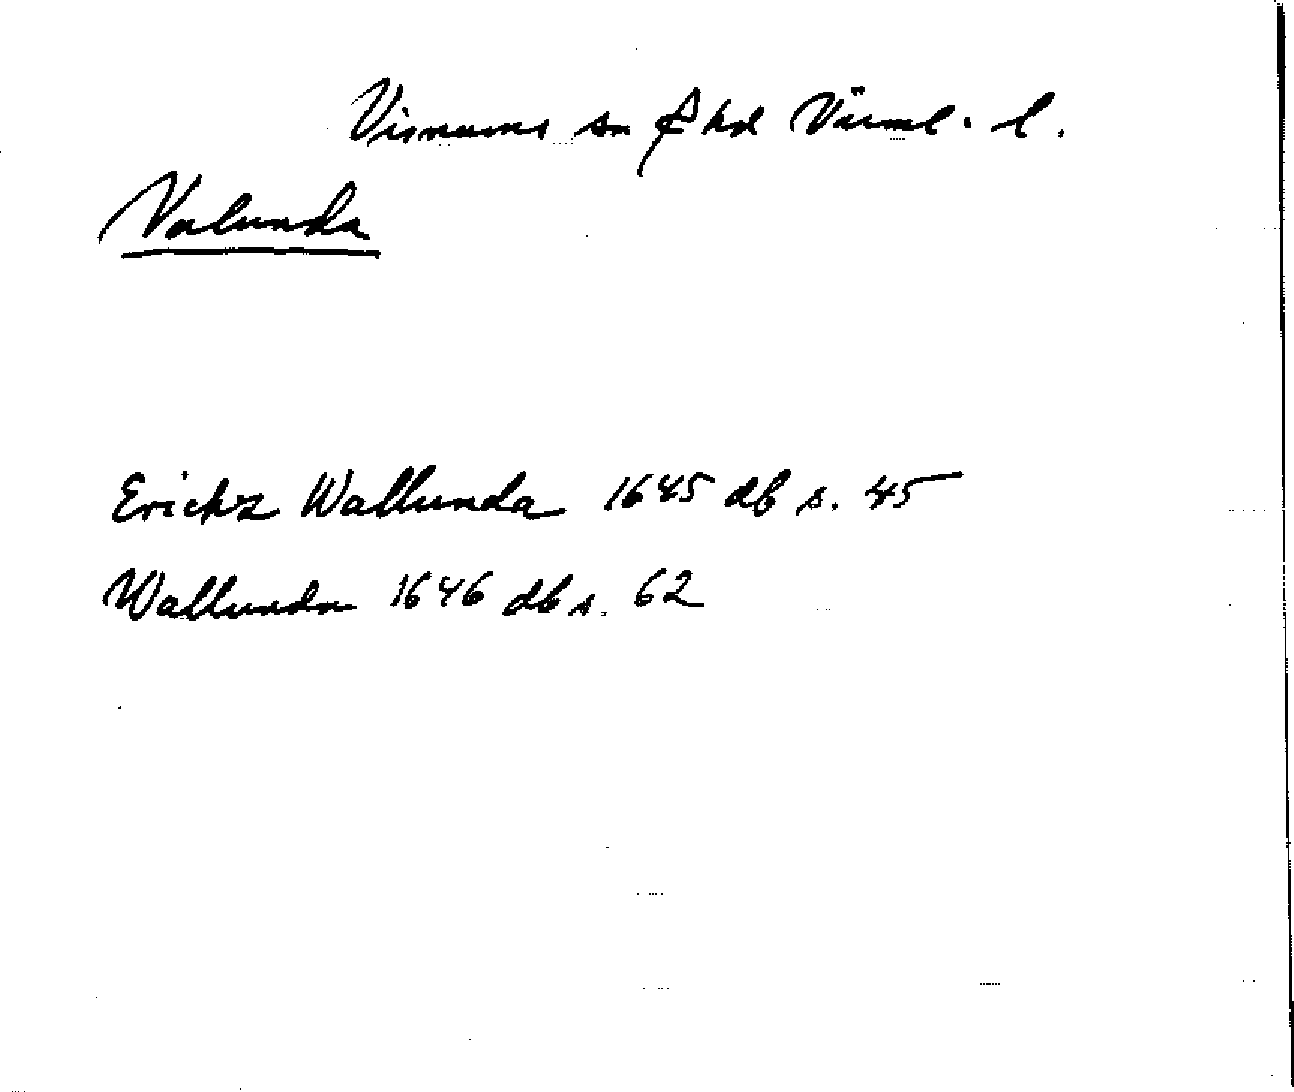 Visnums sn hd Värml. l.
Valunda
Erichz Wallunda 1645 db s. 45
Wallunda 1646 db s. 62